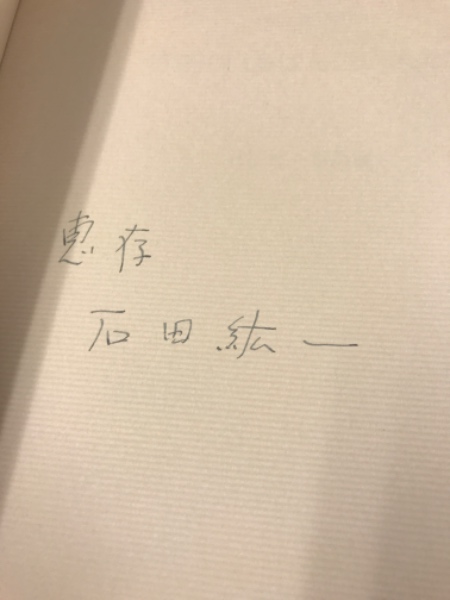 恵存
石田紘一